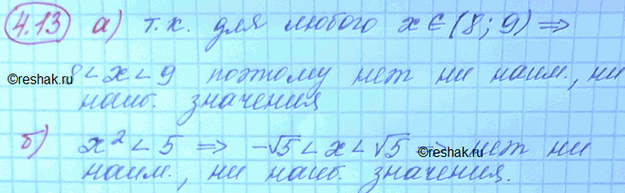 4.13 а) т.к. для любого x ∈ (8; 9) ⇒
8 < x < 9 поэтому нет ни наим., ни
©reshak.ru ©reshak.ru
наиб. значения
б) x² < 5 ⇒ -√5 < x < √5 ⇒ нет ни
©reshak.ru
наим., ни наиб. значения.